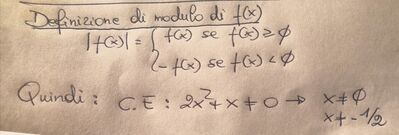 Definizione di modulo di f(x)
|f(x)| = { f(x) se f(x) ≥ 0
{ -f(x) se f(x) < 0
Quindi : C.E : 2x²+x ≠ 0 → x ≠ 0
x ≠ -1/2